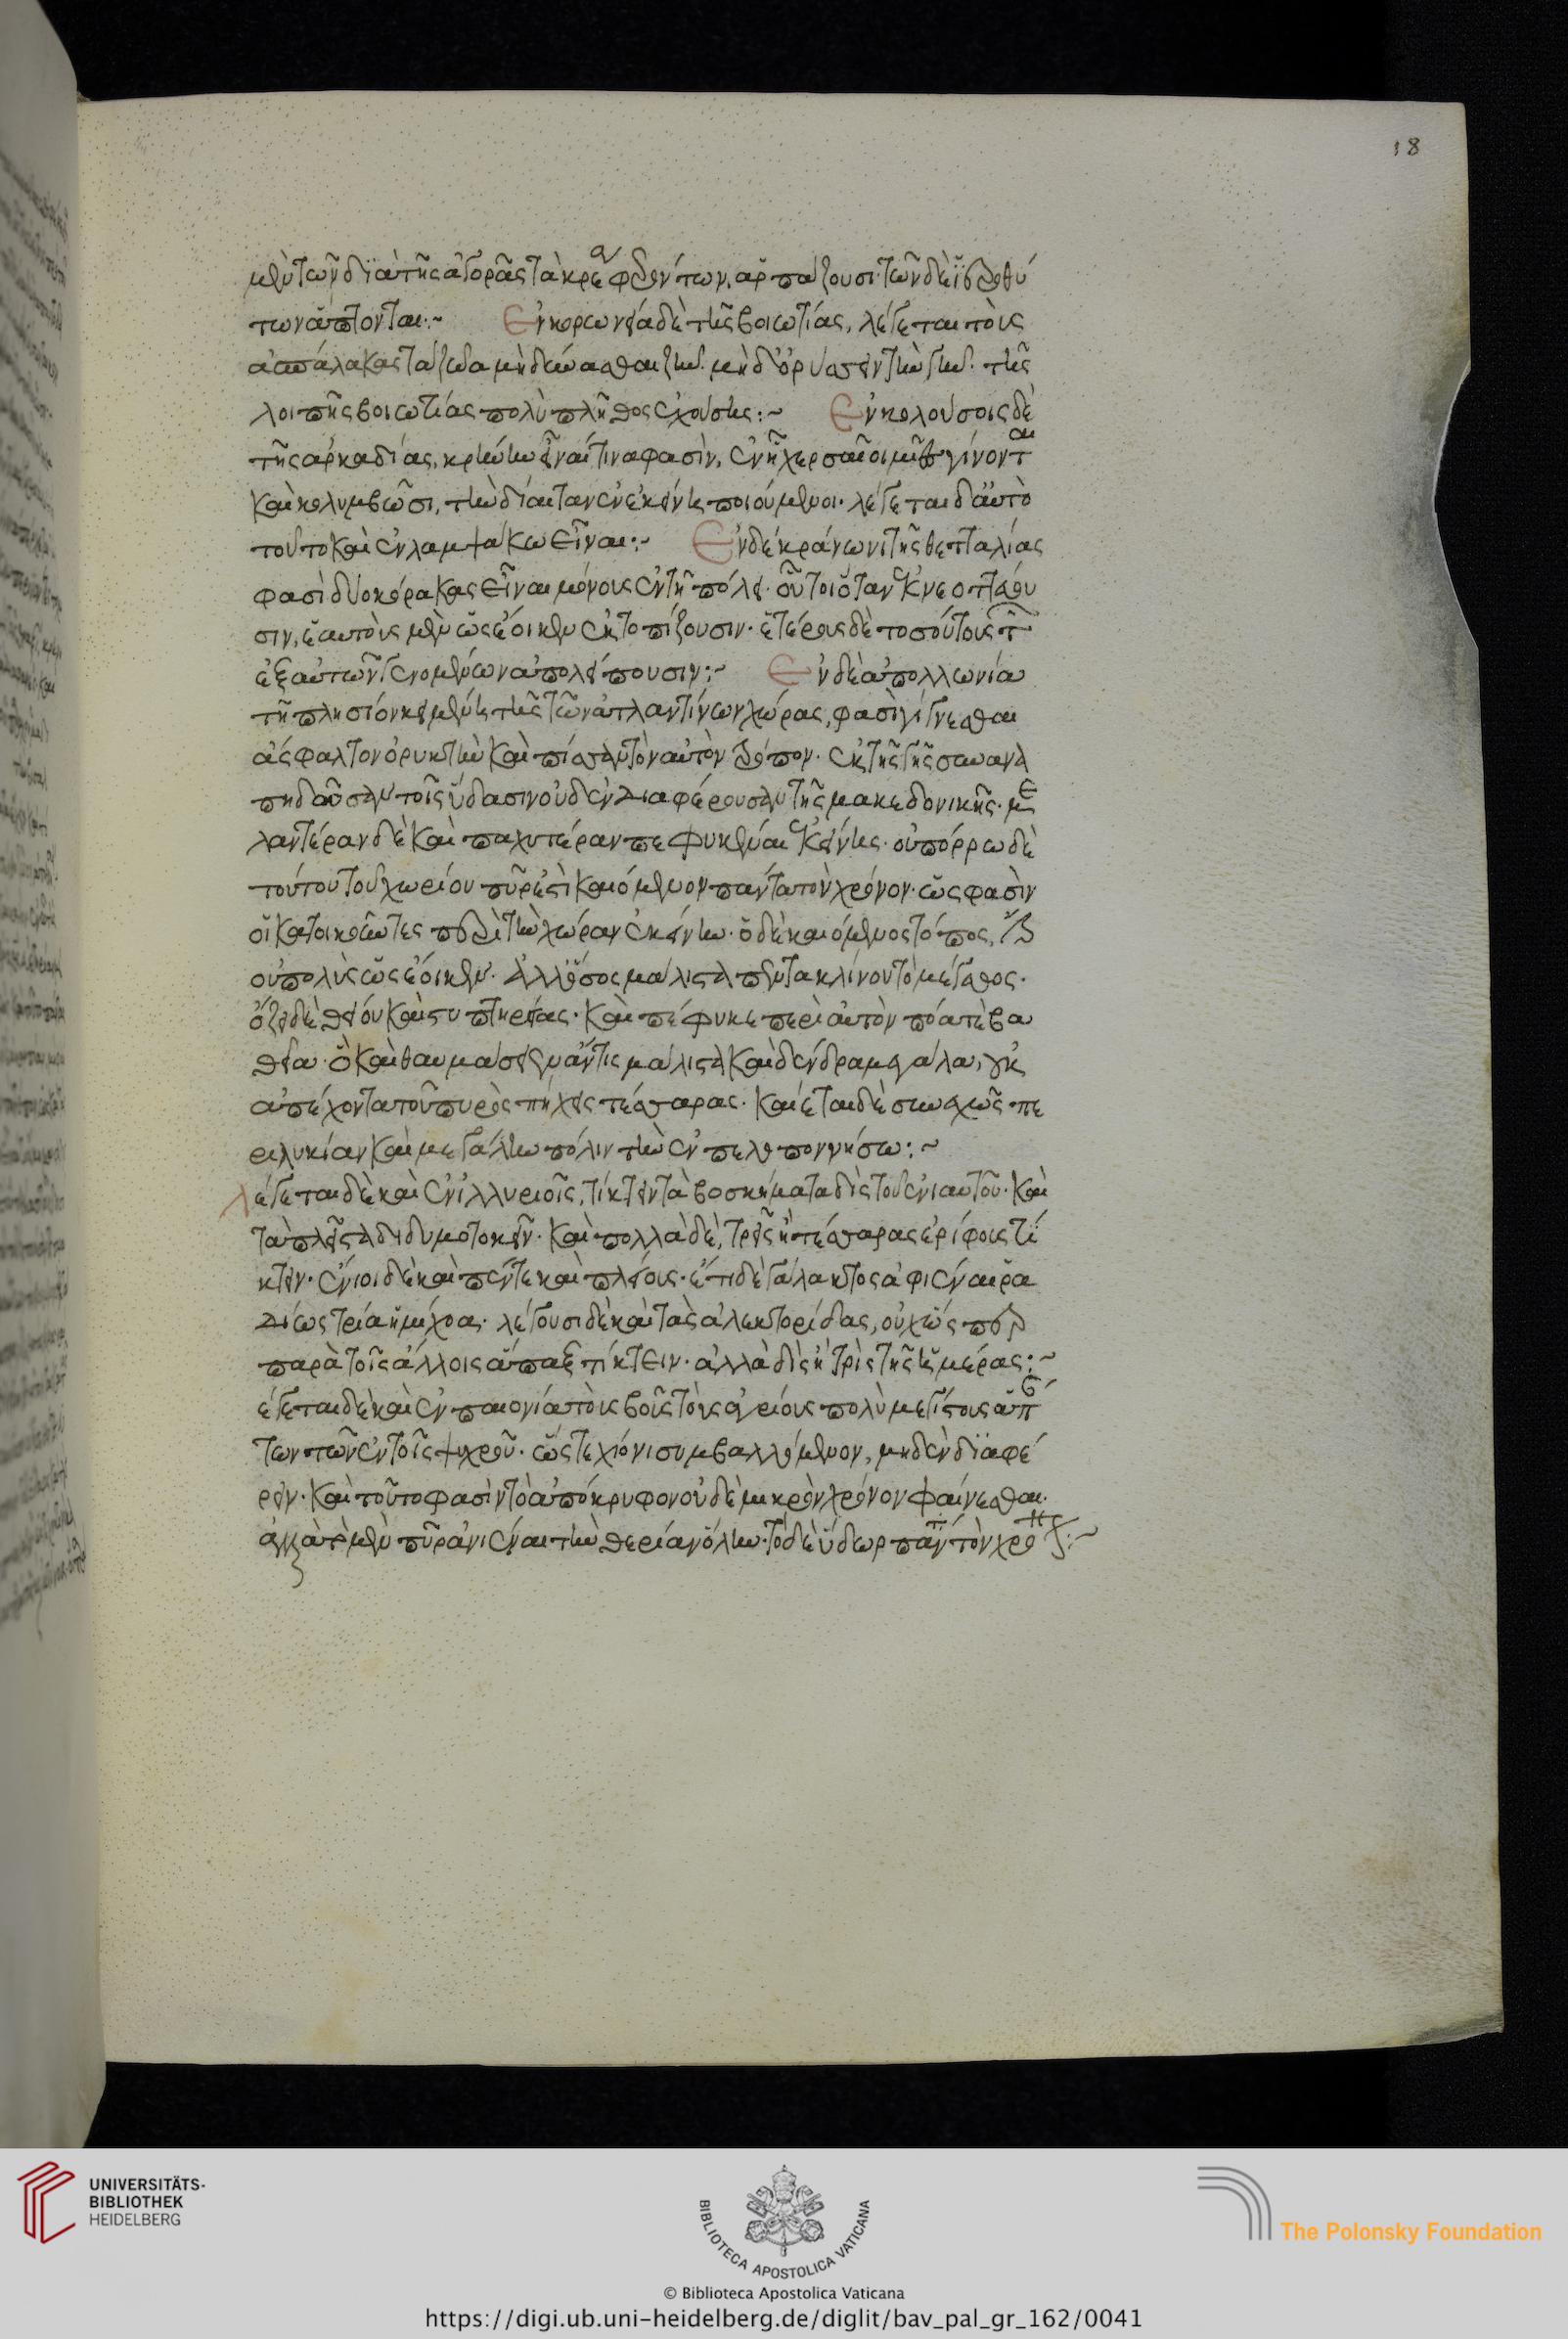 18
μὲν τῶν διὰ τῆς ἀγορᾶς τὰ κρέα φερόντων, ἁρπάζουσι. τῶν δὲ ἱεροθύ
των ἅπτονται:~ Ἐν κορωνεία δὲ τῆς βοιωτίας, λέγεται τοὺς
ἀσπάλακας τὰ ζῶα μὴ δύνασθαι ζῆν. μηδ' ὀρύσσειν τὴν γῆν. τῆς
λοιπῆς βοιωτίας πολὺ πλῆθος ἐχούσης:~ Ἐν κολούσοις δὲ
τῆς ἀρκαδίας, κρήνην εἶναί τινα φασὶν, ἐν ἧ χερσαῖοι μῦς γίνονται
καὶ κολυμβῶσι, τὴν δίαιταν ἐν ἐκείνη ποιούμενοι. λέγεται δ' αὐτὸ
τοῦτο καὶ ἐν λαμψάκω εἶναι:~ Ἐν δὲ κράνωνι τῆς θετταλίας
φασὶ δύο κόρακας εἶναι μόνους ἐν τῆ πόλει. οὗτοι ὅταν ἐκνεοττεύ
σιν, ἑαυτοὺς μὲν ὡς ἔοικεν ἐκτοπίζουσιν. ἑτέρους δὲ τοσούτους τ
ἐξ αὐτῶν γενομένων ἀπολείπουσιν:~ Ἐν δὲ ἀπολλωνία
τῆ πλησίον κειμένη τῆς τῶν ἀτλαντίνων χώρας, φασὶ γίγνεσθαι
ἄσφαλτον ὀρυκτὴν καὶ πίσσαν τὸν αὐτὸν τρόπον. ἐκ τῆς γῆς σαν ἀνα
πηδᾶν σαν τοῖς ὕδασιν οὐδὲν διαφέρουσαν τῆς μακεδονικῆς. με
λαντέραν δὲ καὶ παχυτέραν πεφυκέναι ἐκείνης. οὐ πόρρω δὲ
τούτου τοῦ χωρίου πῦρ ἐστὶ καιόμενον πάντα τὸν χρόνον. ὥς φασὶν
οἱ κατοικοῦντες περὶ τὴν χώραν ἐκείνην. ὁ δὲ καιόμενος τόπος, ἐστὶν
οὐ πολὺς ὡς ἔοικεν. ἀλλ' ὅσος μάλιστα πεντακλίνου τὸ μέγαθος.
ὄζει δὲ θείου καὶ στυπτηρίας. καὶ πέφυκε περὶ αὐτὸν πόα τὲ βα
θεῖα. ὃ καὶ θαυμάσειεν ἄν τις μάλιστα καὶ δένδρα μεγάλα, οὐκ
ἀπέχοντα τοῦ πυρὸς πήχεις τέσσαρας. καίεται δὲ συνεχῶς πε
ρὶ λυκίαν καὶ μεγάλην πόλιν τὴν ἐν πελοποννήσω:~
λέγεται δὲ καὶ ἐν ἰλλυριοῖς, τίκτειν τὰ βοσκήματα δὶς τοῦ ἐνιαυτοῦ. καὶ
τὰ πλεῖστα διδυμοτοκεῖν. καὶ πολλὰ δὲ, τρεῖς ἢ τέσσαρας ἐρίφους τί
κτειν. ἔνιοι δὲ καὶ πέντε καὶ πλείους. ἔτι δὲ γάλακτος ἀφιέναι ῥα
δίως τρία ἡμίχοα. λέγουσι δὲ καὶ τὰς ἀλεκτορίδας, οὐχ ὥσπερ
παρὰ τοῖς ἄλλοις ἅπαξ τίκτειν. ἀλλὰ δὶς ἢ τρὶς τῆς ἡμέρας:~
έγεται δὲ καὶ ἐν παιονία τοὺς βοῦς τοὺς ἀγρίους πολὺ μεγίστους ἁπ
των τῶν ἐν τοῖς ψυχροῦ. ὥστε χιόνι συμβαλλόμενον, μηδὲν διαφέ
ρειν. καὶ τοῦτο φασὶν τὸ ἀπόκρυφον οὐδὲ μικρὸν χρόνον φαίνεσθαι.
ἀλλὰ τὸ μὲν πῦρ ἀνιέναι τὴν θερίαν ὅλην. τὸ δὲ ὕδωρ πάντα τὸν χρό
UNIVERSITÄTS-
BIBLIOTHEK
HEIDELBERG
BIBLIOTECA APOSTOLICA VATICANA
The Polonsky Foundation
© Biblioteca Apostolica Vaticana
https://digi.ub.uni-heidelberg.de/diglit/bav_pal_gr_162/0041